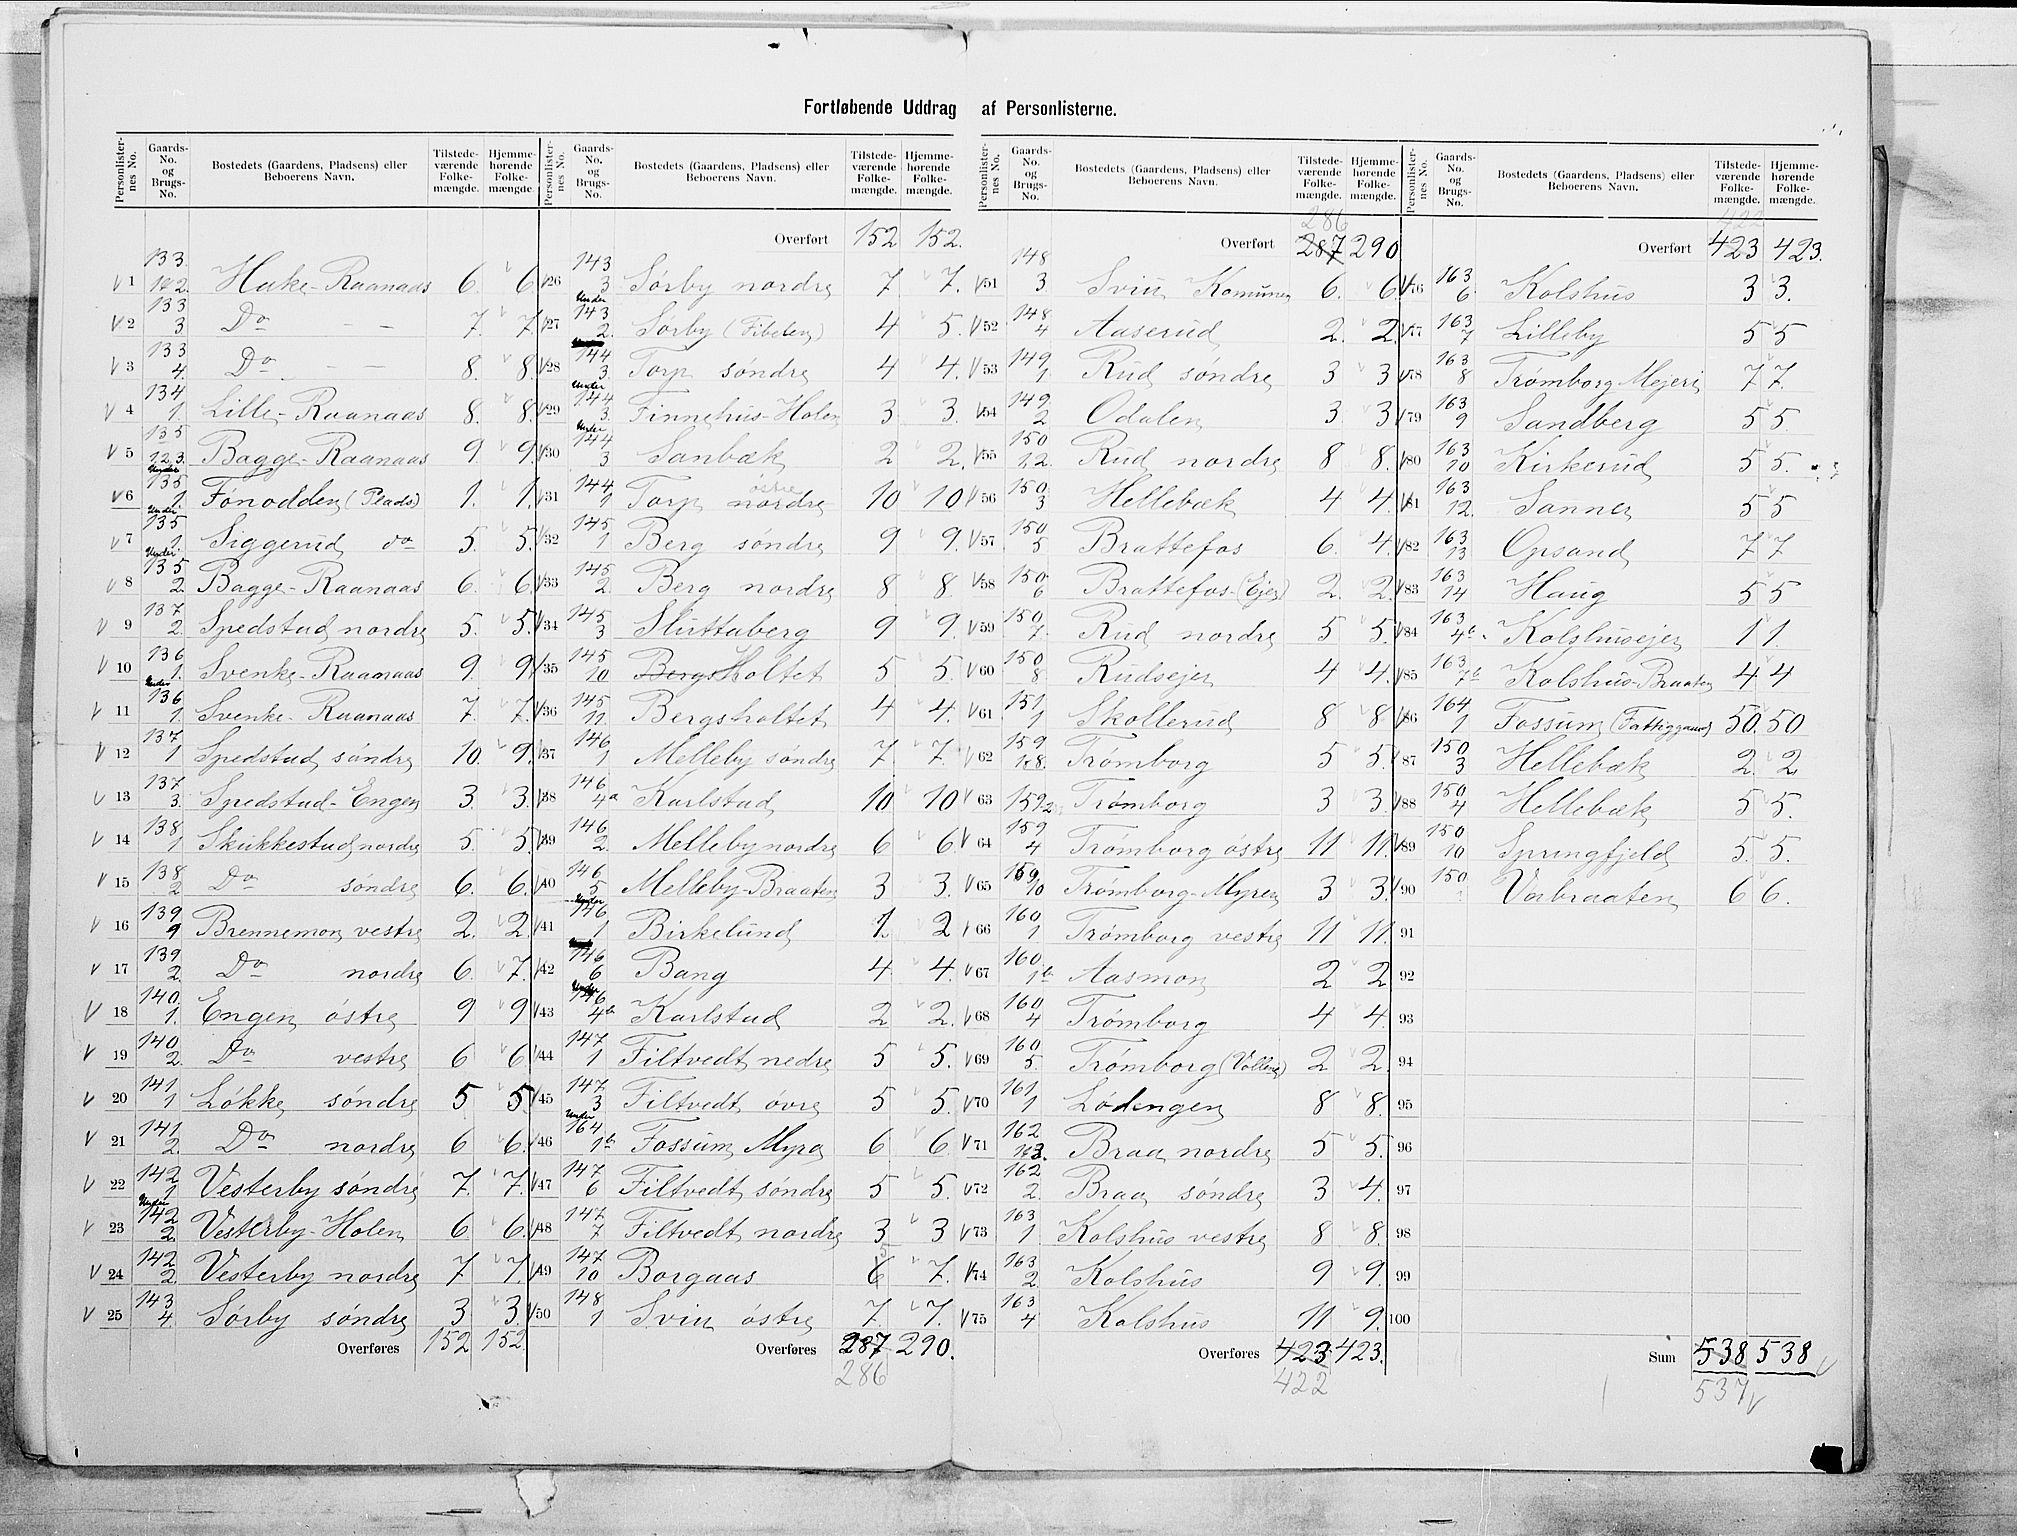 Fortløbende Uddrag af Personlisterne.
Personlisternes No. Gaards-No. og Brugs-No. Bostedets (Gaardens, Pladsens) eller Beboerens Navn. Tilstedeværende Folkemængde. Hjemmehørende Folkemængde.
1 133 1&2. Hake-Raanaas 6. 6
2 133 3 Do — — 7. 7
3 133 4. Do — — 8. 8.
4 134 1. Lille-Raanaas 8. 8.
5 135 1.2.3. Bagge-Raanaas 9. 9.
6 Under 135 1. Fønodden (Plads) 1. 1.
7 Under 135 1. Siggerud do 5. 5.
8 Under 135 2. Bagge-Raanaas 6. 6.
9 137 2. Spedstad nordre 5. 5.
10 136 1. Svenke-Raanaas 9. 9.
11 Under 136 1. Svenke-Raanaas 7. 7.
12 137 1 Spedstad søndre 10. 9.
13 137 3. Spedstad-Engen 3. 3.
14 138 1 Skukkestad nordre 5. 5.
15 138 2 Do søndre 6. 6.
16 139 9 Brennemoen vestre 2. 2.
17 139 2. Do nordre 6. 7.
18 140 1. Engen østre 9 9
19 140 2. Do vestre 6 6
20 141 1 Løkke søndre 5 5
21 141 2. Do nordre 6 6.
22 142 1 Vesterby søndre 7. 7.
23 Under 142 2. Vesterby-Holen 6 6.
24 142 2 Vesterby nordre 7 7
25 143 4. Sørby søndre 3 3.
Overføres 152 152
Personlisternes No. Gaards-No. og Brugs-No. Bostedets (Gaardens, Pladsens) eller Beboerens Navn. Tilstedeværende Folkemængde. Hjemmehørende Folkemængde.
Overført 152 152.
26 143 3 Sørby nordre 7 7.
27 Under 143 2. Sørby (Tibeten) 4 5.
28 144 3. Torp søndre 4 4.
29 Under 144 3. Finnehus-Holen 3 3.
30 Under 144 3 Sanbæk 2 2.
31 144 1 Torp nordre østre 10 10
32 145 1 Berg søndre 9 9.
33 145 2. Berg nordre 8 8
34 145 3 Sluttaberg 9 9.
35 145 10 Bergs Holtet 5 5.
36 145 11 Bergsholtet 4 4.
37 146 1 Melleby søndre 7 7.
38 146 4a Karlstad 10 10
39 146 2. Melleby nordre 6 6.
40 146 5 Melleby-Braaten 3 3.
41 Under 146 1 Birkelund 1. 2
42 146 6 Bang 4 4.
43 Under 146 4b Karlstad 2 2.
44 147 1 Filtvedt nedre 5 5.
45 147 3 Filtvedt øvre 5 5.
46 Under 164 1b Fossum Myra 6 6
47 147 6 Filtvedt søndre 5 5.
48 147 7 Filtvedt nordre 3 3
49 147 10 Borgaas 6 5 7.
50 148 1 Sviu østre 7. 7.
Overføres 287 290.
286
Personlisternes No. Gaards-No. og Brugs-No. Bostedets (Gaardens, Pladsens) eller Beboerens Navn. Tilstedeværende Folkemængde. Hjemmehørende Folkemængde.
286
Overført 287 290
51 148 3 Sviu Komunen 6. 6
52 148 4 Aaserud 2. 2.
53 149 1 Rud søndre 3 3
54 149 2 Odalen 3 3
55 150 1.2. Rud nordre 8 8.
56 150 3 Hellebæk 4 4.
57 150 5 Brattefos 6. 4.
58 150 6 Brattefos-(Ejer) 2. 2.
59 150 7. Rud nordre 5 5.
60 150 8 Rudsejer 4 4.
61 151 1 Skollerud 8 8
62 159 1&8. Trømborg 5 5.
63 159 2 Trømborg 3 3.
64 159 4 Trømborg østre 11 11.
65 159 10 Trømborg-Myren 3 3.
66 160 1. Trømborg vestre 11 11.
67 160 1b Aasmoen 2 2
68 160 4 Trømborg 4 4.
69 160 5. Trømborg (Vollene) 2 2.
70 161 1 Lødengen 8 8.
71 162 1&3. Braa nordre 5 5.
72 162 2. Braa søndre 3 4.
73 163 1 Kolshus vestre 8 8.
74 163 2. Kolshus 9 9.
75 163 4 Kolshus 11 9.
Overføres 423 423.
422
Personlisternes No. Gaards-No. og Brugs-No. Bostedets (Gaardens, Pladsens) eller Beboerens Navn. Tilstedeværende Folkemængde. Hjemmehørende Folkemængde.
422
Overført 423 423.
76 163 6. Kolshus 3 3.
77 163 7 Lilleby 5 5
78 163 8 Trømborg Mejeri 7 7.
79 163 9 Sandberg 5 5
80 163 10 Kirkerud 5 5.
81 163 12. Sannes 5 5
82 163 13 Opsand 7 7
83 163 14 Haug 5 5
84 163 4b. Kolshusejer 1 1.
85 163 7b Kolshus-Braaten 4 4
86 164 1 Fossum (Fattiggaard) 50. 50
87 150 3 Hellebæk 2. 2
88 150 4 Hellebæk 5 5.
89 150 10 Springfjeld 5. 5.
90 150 Vorbraaten 6 6.
91
92
93
94
95
96
97
98
99
100
Sum 538 538
537